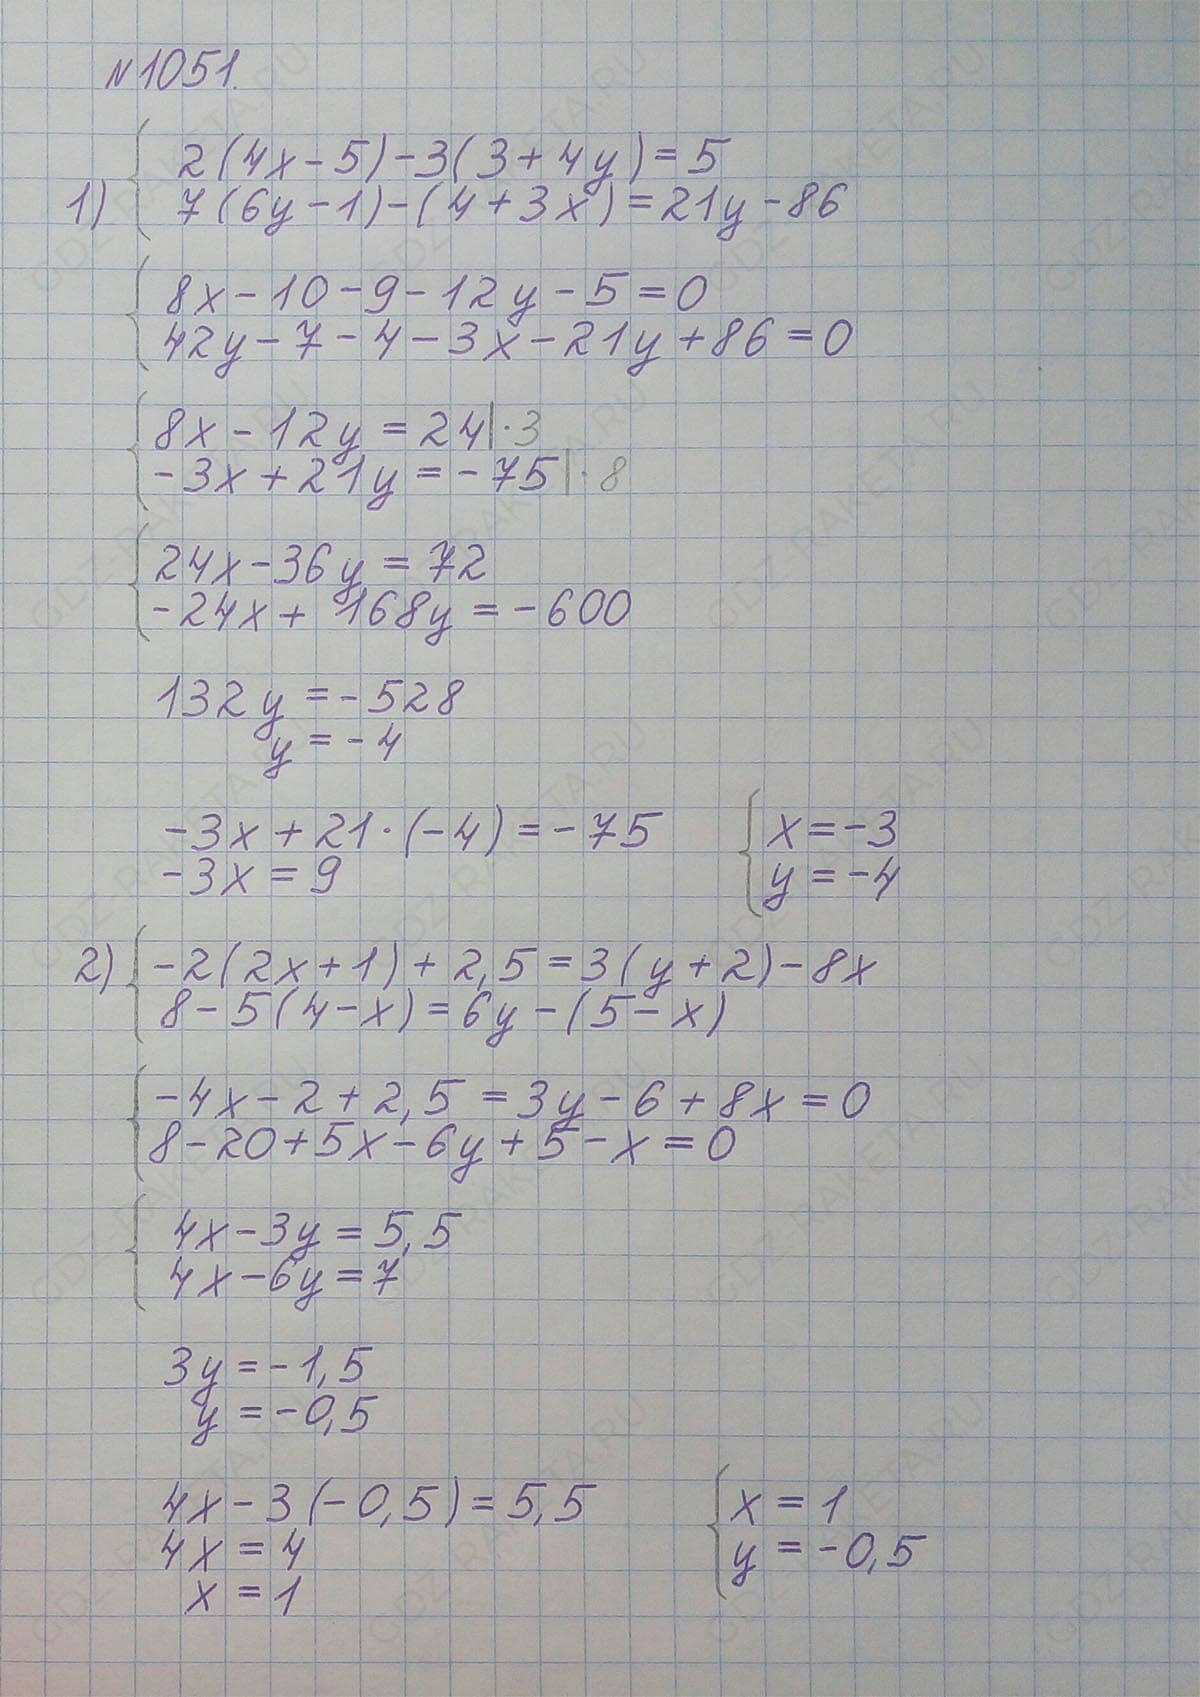 №1051.
1) { 2(4x-5)-3(3+4y)=5
7(6y-1)-(4+3x)=21y-86
{ 8x-10-9-12y-5=0
42y-7-4-3x-21y+86=0
{ 8x-12y=24|·3
-3x+21y=-75|·8
{ 24x-36y=72
-24x+168y=-600
132y=-528
y=-4
-3x+21·(-4)=-75
-3x=9
{ x=-3
y=-4
2) { -2(2x+1)+2,5=3(y+2)-8x
8-5(4-x)=6y-(5-x)
{ -4x-2+2,5=3y-6+8x=0
8-20+5x-6y+5-x=0
{ 4x-3y=5,5
4x-6y=7
3y=-1,5
y=-0,5
4x-3(-0,5)=5,5
4x=4
x=1
{ x=1
y=-0,5
GDZ-RAKETA.RU